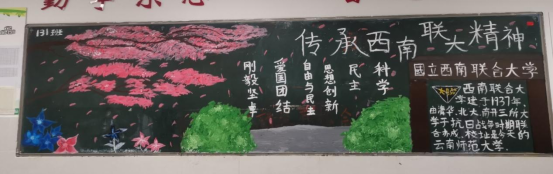 131班
传承西南联大精神
科学
民主
思想创新
自由与民主
爱国团结
刚毅坚卓
國立西南联合大学
西南联合大
学建于1937年,
由清华、北大、南开三所大
学于抗日战争时期联
合而成。校址是今天的
云南师范大学。